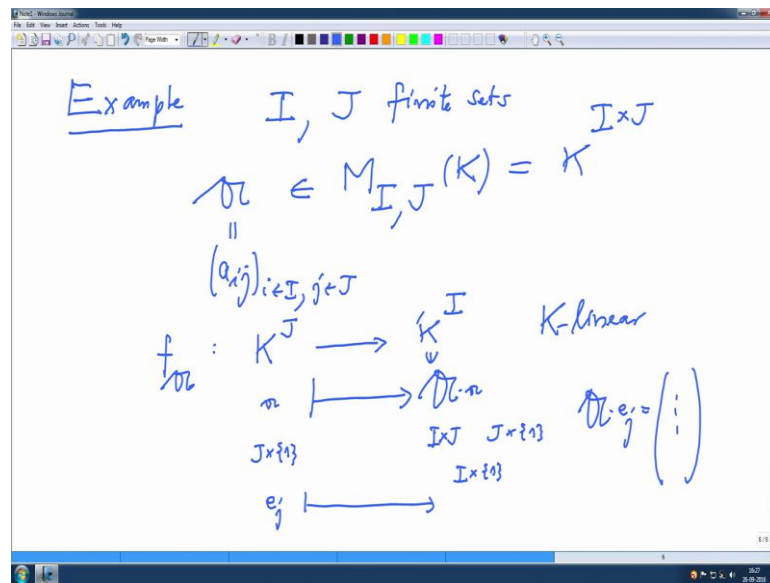 Note1 - Windows Journal
File Edit View Insert Actions Tools Help
Page Width
B I
Example I, J finite sets
𝔄 ∈ M_{I,J}(K) = K^{I×J}
||
(a_{ij})_{i∈I, j∈J}
f_𝔄 : K^J ⟶ K^I K-linear
x ⟼ 𝔄·x 𝔄·e_j = ( ⋮ )
J×{1} I×J J×{1}
I×{1}
e_j ⟼
6/6
6
16:27